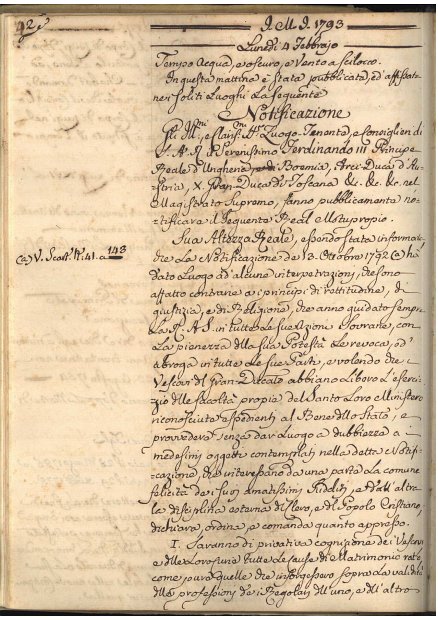 92
J. M. J. 1793
Lunedì 4 Febbrajo
Tempo Acqua, e oscuro, e Vento a Scilocco.
In questa mattina è Stata pubblicata, ed affissa
nei soliti Luoghi La Seguente
Notificazione
Gli Ill.mi, e Clariss.mi SS.ri Luogo-Tenente, e Consiglieri di
S. A. R. il Serenissimo Ferdinando III Principe
Reale d'Ungheria, e di Boemia, Arci-Duca d'Au-
stria, X. Gran-Duca di Toscana &c. &c. &c. nel
Magistrato Supremo, fanno pubblicamente no-
tificare il Seguente Real Motuproprio.
Sua Altezza Reale, essendo stata informa-
ta che La Notificazione de' 18. Ottobre 1792 (a) hà
(a) V. Scaff. N.º 41. a 143
dato Luogo ad alcune interpetrazioni, che sono
affatto contrarie a i principi di rettitudine, di
giustizia, e di Religione, che anno guidato sempre
La R. A. S. in tutte Le Sue Azioni Sovrane, con
La pienezza della Sua Potestà Le revoca, ed
abroga in tutte Le Sue Parti, e volendo che i
Vescovi del Gran-Ducato abbiano Libero L'eserci-
zio delle facoltà proprie del Santo Loro Ministero
riconosciute espedienti al Bene dello Stato, e
provvedere senza dar Luogo a dubbiezza a i
medesimi oggetti contemplati nella detta Notifi-
cazione, che interessano da una parte La comune
felicità de i suoi amatissimi Sudditi, e dall'altra
La disciplina esterna del Clero, e del Popolo Cristiano,
dichiara, ordina, e comanda quanto appresso.
I. Saranno di privativa cognizione de i Vescovi
e delle Loro Curie tutte Le Cause di Matrimonio rato
come pure quelle che insorgessero sopra La validità
delle professioni de i Regolari dell'uno, e dell'altro